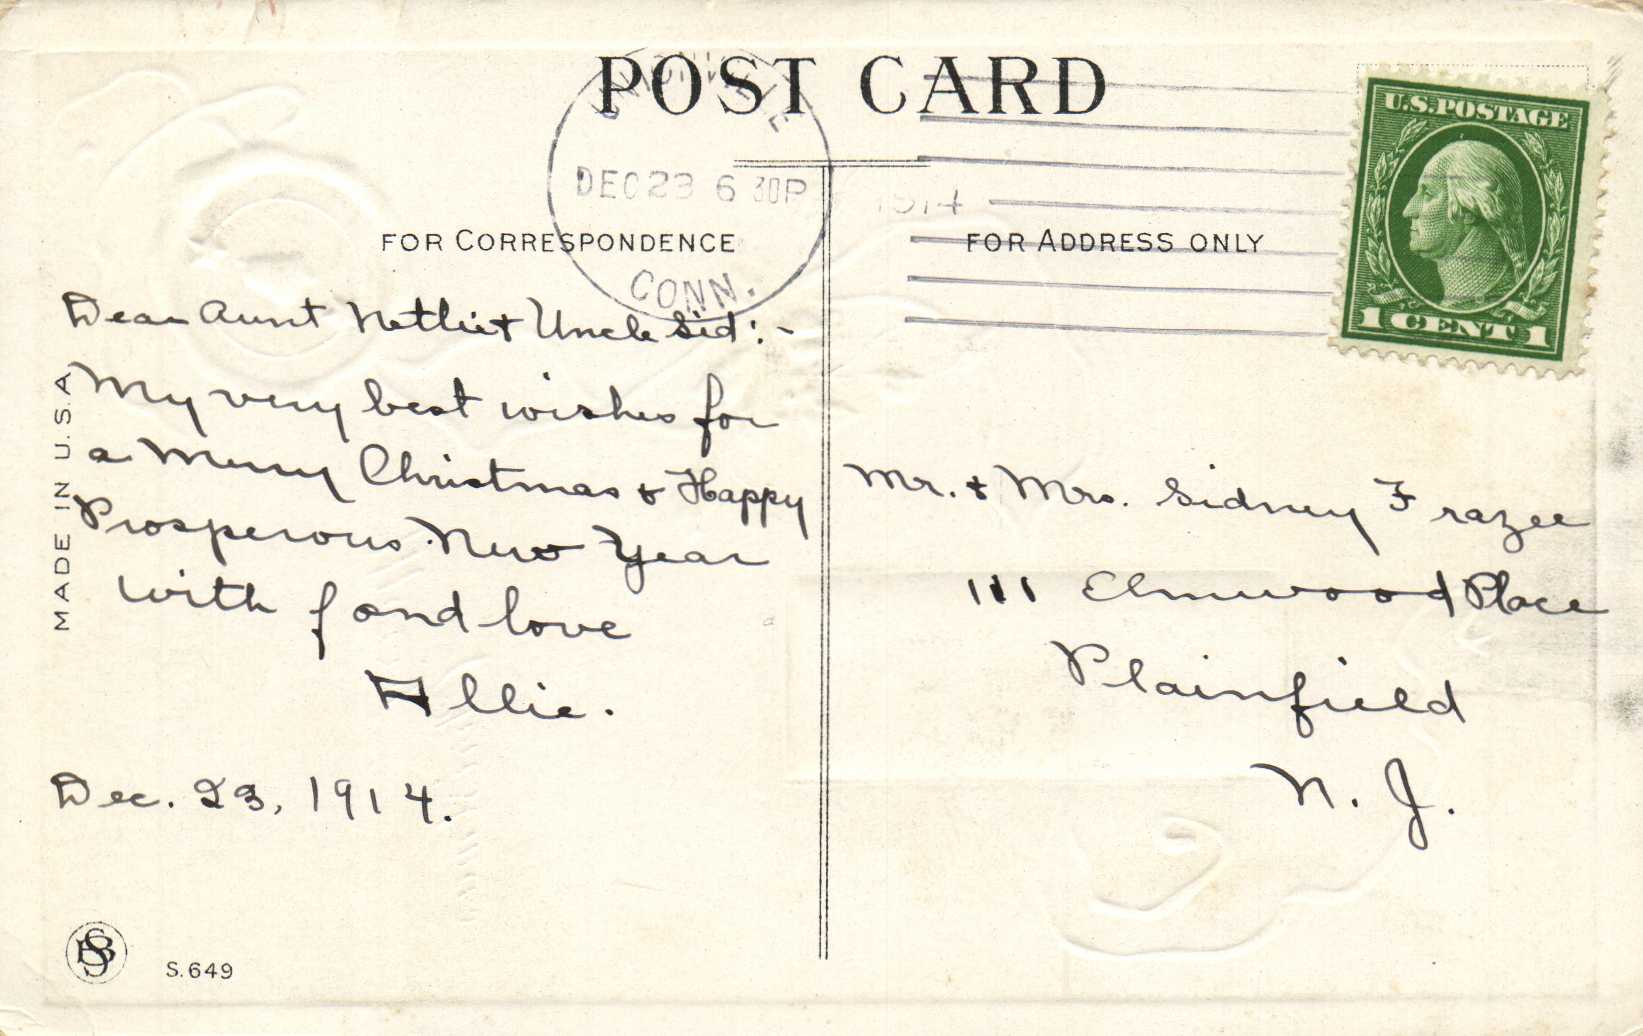 POST CARD
DEC 23 6 30P
1914
CONN.
U.S. POSTAGE
1 CENT 1
FOR CORRESPONDENCE
FOR ADDRESS ONLY
Dear Aunt Nettie & Uncle Sid:-
My very best wishes for
a Merry Christmas & Happy
Prosperous New Year
with fond love
Allie.
Dec. 23, 1914.
MADE IN U.S.A
S.649
Mr. & Mrs. Sidney Frazee
111 Elmwood Place
Plainfield
N. J.